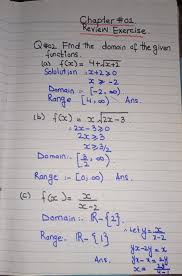 Chapter #01
Review Exercise.
Q#02 Find the domain of the given
functions.
(a) f(x) = 4+√x+2
Solution = x+2≥0
x ≥ -2
Domain :- [-2, ∞)
Range [4, ∞) Ans.
(b) f(x) = x√2x-3
= 2x-3≥0
2x≥3
x≥3/2
Domain:- [3/2, ∞)
Range :- [0, ∞) Ans.
(c) f(x) = x/x-2
Domain:- R-{2}.
Range:- R-{1}
Ans.
Let y = x/x-2
yx-2y = x
yx-x = 2y